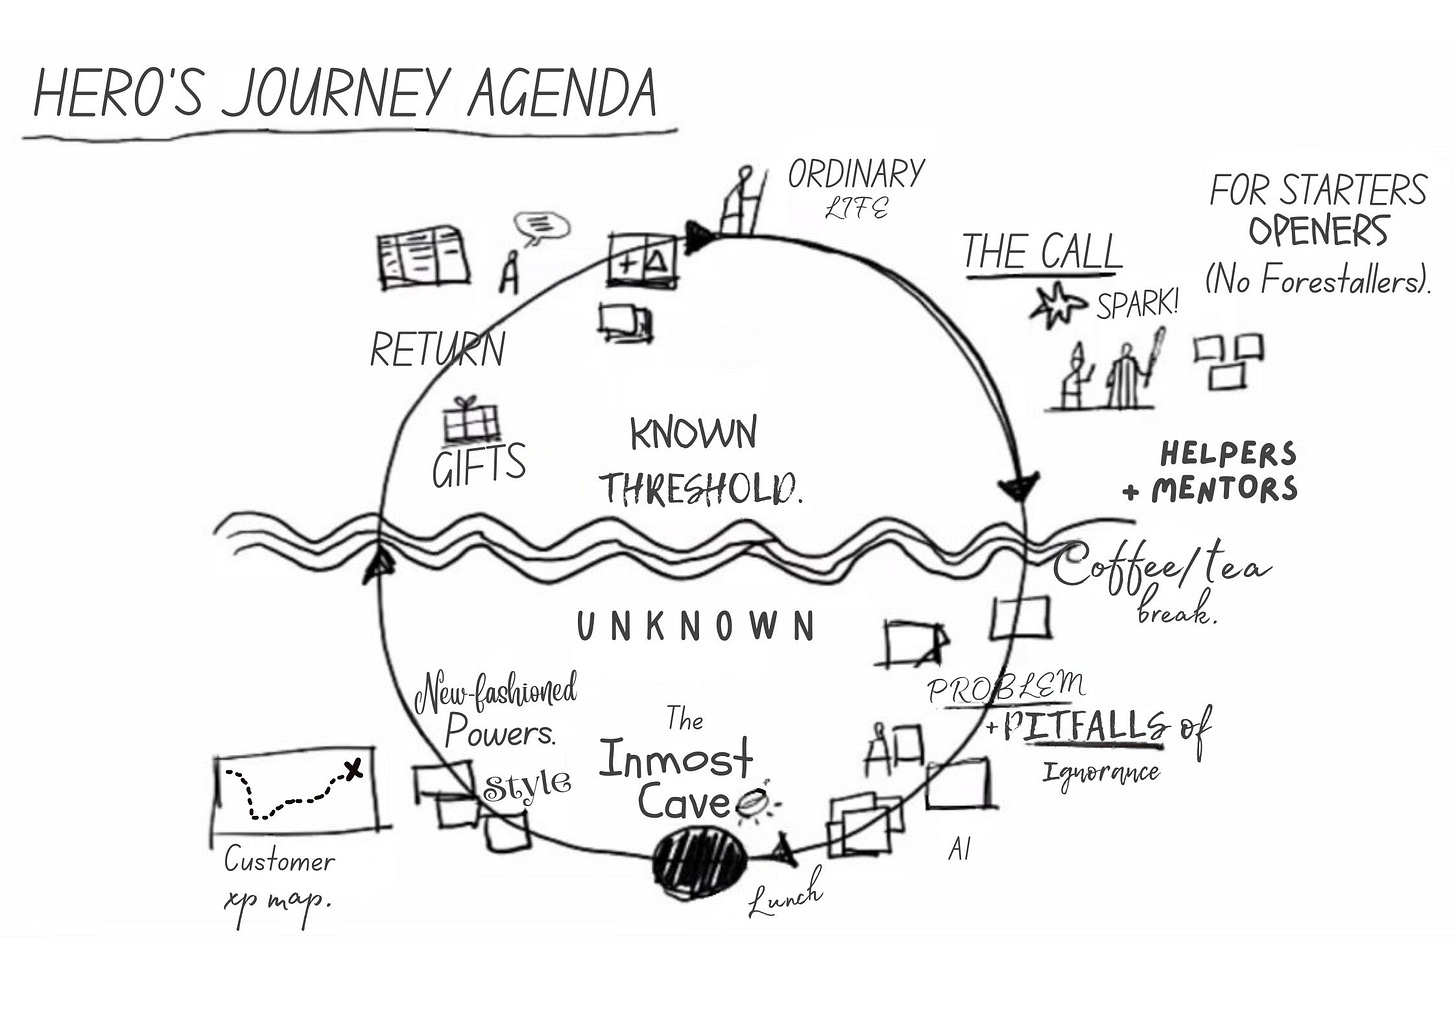 HERO'S JOURNEY AGENDA
ORDINARY
LIFE
FOR STARTERS
OPENERS
(No Forestallers).
THE CALL
SPARK!
HELPERS
+ MENTORS
Coffee/tea
break.
PROBLEM
+PITFALLS of
Ignorance
AI
Lunch
The
Inmost
Cave
New-fashioned
Powers.
Style
Customer
xp map.
RETURN
GIFTS
+ Δ
KNOWN
THRESHOLD.
UNKNOWN